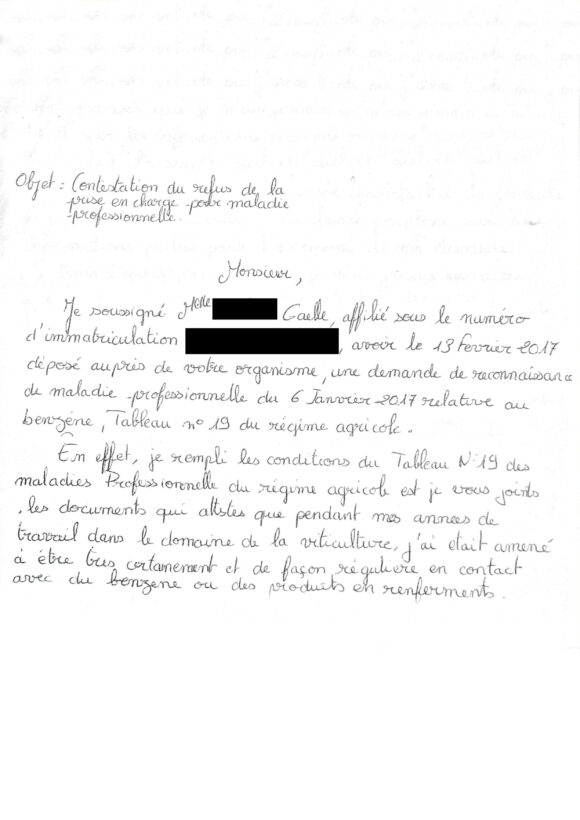 Objet : Contestation du refus de la
prise en charge pour maladie
professionnelle.
Monsieur,
Je soussigné Melle Gaelle, affilié sous le numéro
d'immatriculation , avoir le 13 Fevrier 2017
déposé auprès de votre organisme, une demande de reconnaissance
de maladie professionnelle du 6 Janvier 2017 relative au
benzène, Tableau n° 19 du régime agricole.
En effet, je rempli les conditions du Tableau N°19 des
maladies Professionnelle du régime agricole est je vous joints
les documents qui attstes que pendant mes annees de
travail dans le domaine de la viticulture, j'ai était amené
à être trés certainement et de façon régulière en contact
avec du benzene ou des products en renferments.